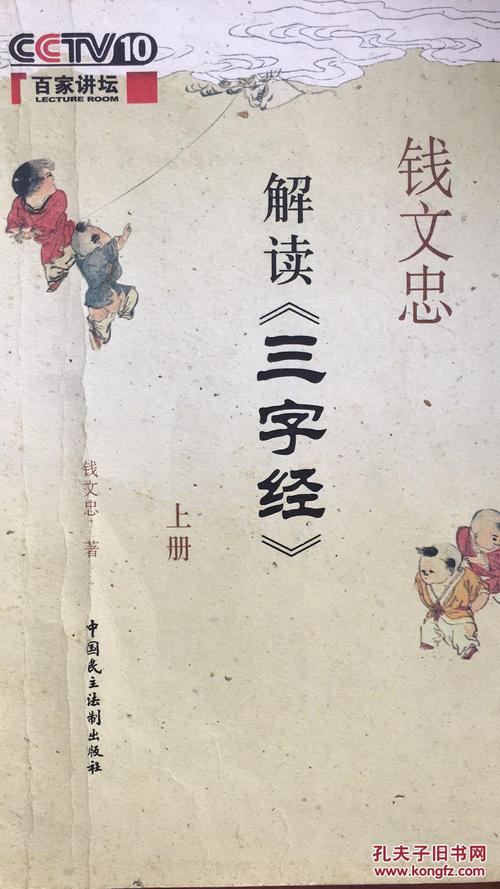 CCTV10
百家讲坛
LECTURE ROOM
钱文忠
解读《三字经》
上册
钱文忠 著
中国民主法制出版社
孔夫子旧书网
www.kongfz.com